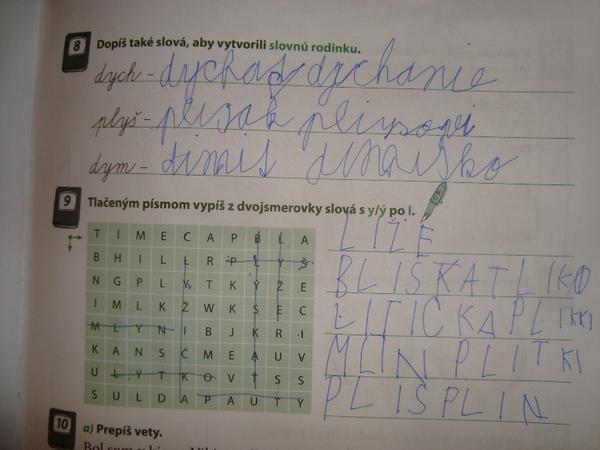 8 Dopíš také slová, aby vytvorili slovnú rodinku.
dych – dychať dychanie
plyš – plišak
dym –
9 Tlačeným písmom vypíš z dvojsmerovky slová s y/ý po l.
T I M E C A P B L A
B H I L L R P L Y Š
N G P L Y T K Ý Ž E
I M L K Ž W K S E C
M L Y N I B J K R I
K A N S Č M E A U V
U L Ý T K O V T S S
S U L D A P A U T Y
LIŽE
BLISKAT LIKO
LITIČKA PLI
MLIN PLITKI
PLIŠ PLIN
10 a) Prepíš vety.